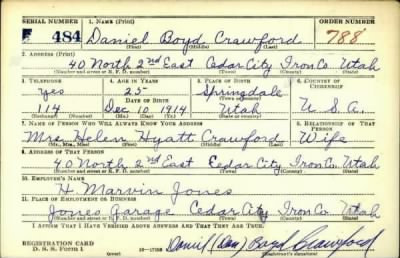 SERIAL NUMBER 1. NAME (Print) ORDER NUMBER
484 Daniel Boyd Crawford 788
(First) (Middle) (Last)
2. ADDRESS (Print)
40 North 2nd East Cedar City Iron Co. Utah
(Number and street or R. F. D. number) (Town) (County) (State)
3. TELEPHONE 4. AGE IN YEARS 5. PLACE OF BIRTH 6. COUNTRY OF CITIZENSHIP
Yes 25 Springdale
DATE OF BIRTH (Town or county)
114 Dec 10 1914 Utah U.S.A.
(Exchange) (Number) (Mo.) (Day) (Yr.) (State or country)
7. NAME OF PERSON WHO WILL ALWAYS KNOW YOUR ADDRESS 8. RELATIONSHIP OF THAT PERSON
Mrs. Helen Hyatt Crawford Wife
(Mr., Mrs., Miss) (First) (Middle) (Last)
9. ADDRESS OF THAT PERSON
40 North 2nd East Cedar City Iron Co. Utah
(Number and street or R. F. D. number) (Town) (County) (State)
10. EMPLOYER'S NAME
H. Marvin Jones
11. PLACE OF EMPLOYMENT OR BUSINESS
Jones Garage Cedar City Iron Co. Utah
(Number and street or R. F. D. number) (Town) (County) (State)
I AFFIRM THAT I HAVE VERIFIED ABOVE ANSWERS AND THAT THEY ARE TRUE.
REGISTRATION CARD
D. S. S. FORM 1 Daniel (Dan) Boyd Crawford
(Registrant's signature)